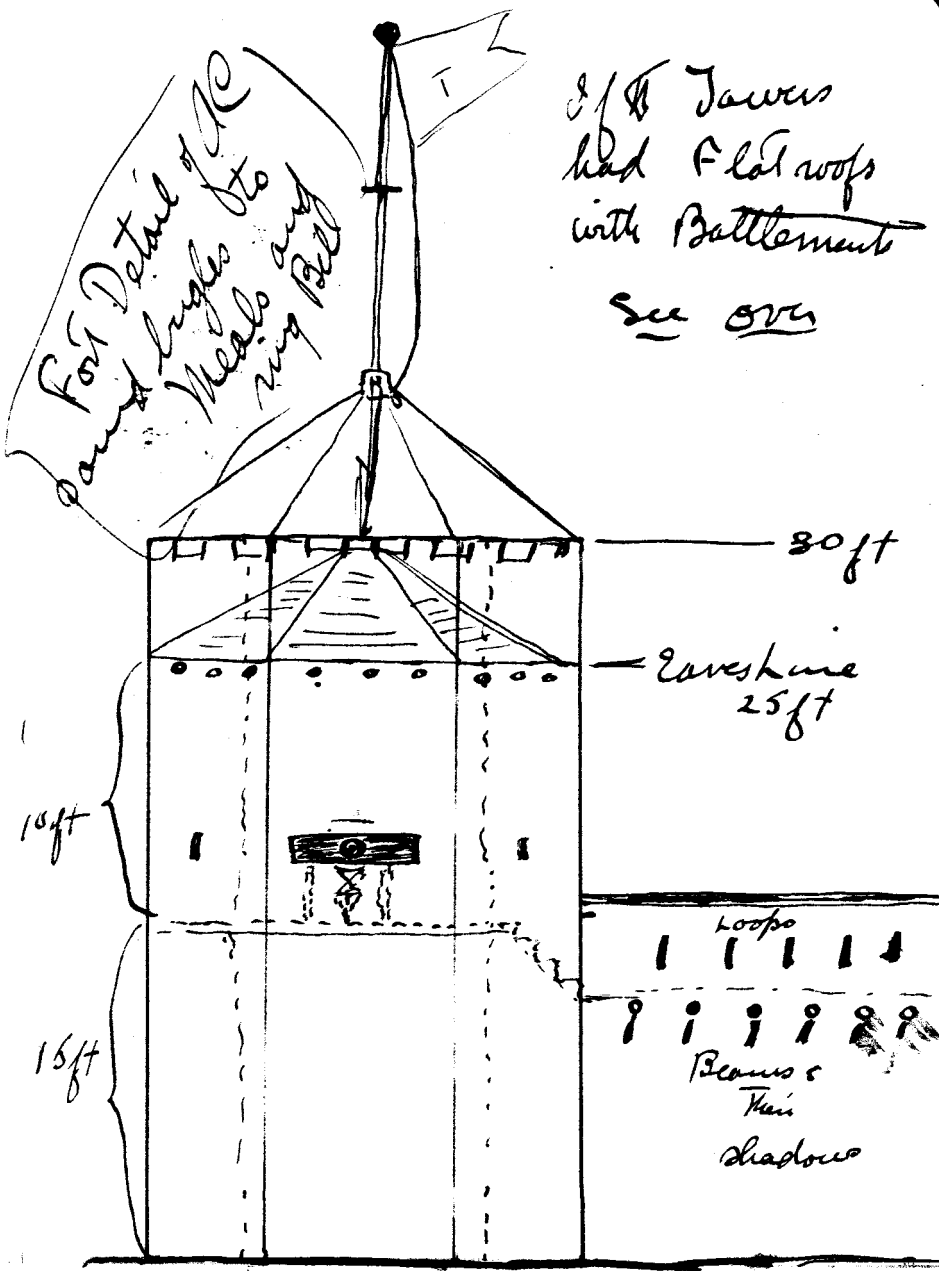 Fort Detail of
Sound bugles to
Meals and
ring Bell
T
If Towers
had Flat roofs
with Battlements
See over
30 ft
Eaves Line
25 ft
10 ft
15 ft
Loops
Beams &
Their
shadows